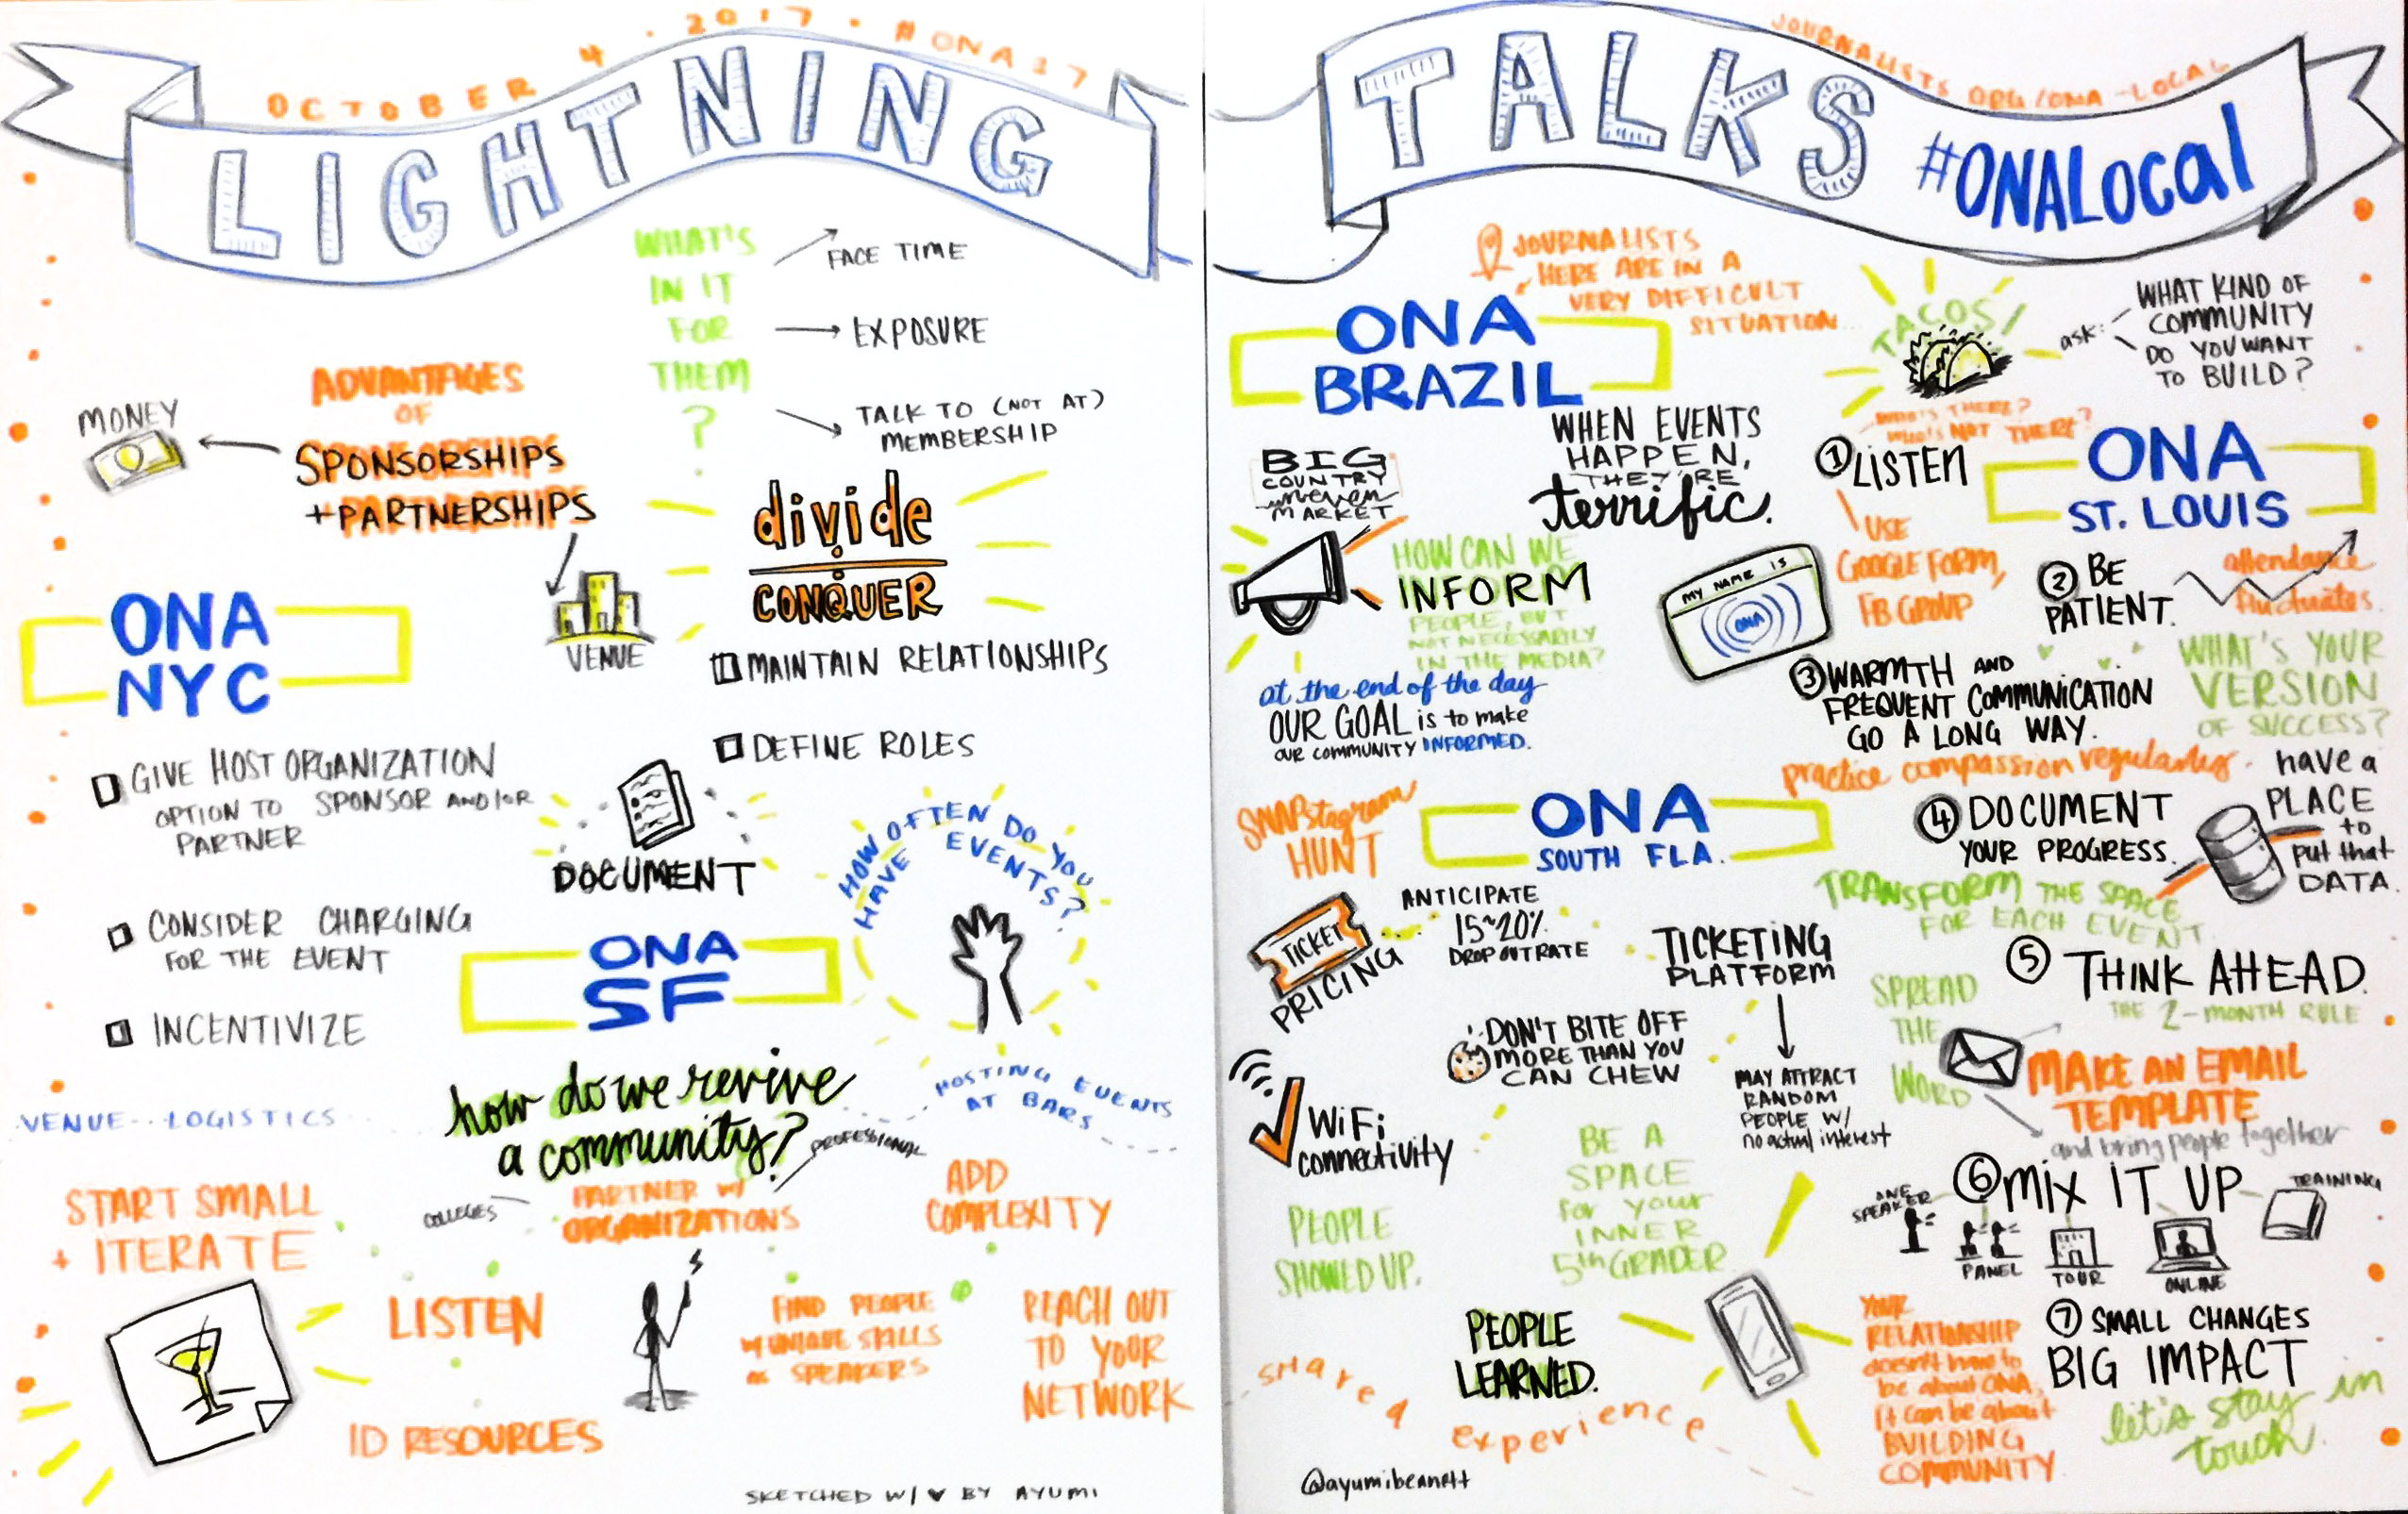 OCTOBER 4 · 2017 · #ONA17
LIGHTNING
WHAT'S
IN IT
FOR
THEM
?
FACE TIME
EXPOSURE
TALK TO (NOT AT)
MEMBERSHIP
ADVANTAGES
OF
SPONSORSHIPS
+PARTNERSHIPS
MONEY
VENUE
divide
CONQUER
MAINTAIN RELATIONSHIPS
DEFINE ROLES
ONA
NYC
GIVE HOST ORGANIZATION
OPTION TO SPONSOR AND/OR
PARTNER
CONSIDER CHARGING
FOR THE EVENT
INCENTIVIZE
DOCUMENT
HOW OFTEN DO YOU
HAVE EVENTS?
ONA
SF
how do we revive
a community?
HOSTING EVENTS
AT BARS
VENUE...LOGISTICS
PROFESSIONAL
COLLEGES
PARTNER W/
ORGANIZATIONS
ADD
COMPLEXITY
START SMALL
+ ITERATE
LISTEN
FIND PEOPLE
W/UNIQUE SKILLS
as SPEAKERS
REACH OUT
TO YOUR
NETWORK
ID RESOURCES
SKETCHED W/ ♥ BY AYUMI
JOURNALISTS.ORG/ONA-LOCAL
TALKS
#ONALocal
JOURNALISTS
HERE ARE IN A
VERY DIFFICULT
SITUATION...
ONA
BRAZIL
BIG
COUNTRY
uneven
MARKET
WHEN EVENTS
HAPPEN,
THEY'RE
terrific.
HOW CAN WE
INFORM
PEOPLE, BUT
NOT NECESSARILY
IN THE MEDIA?
at the end of the day
OUR GOAL is to make
OUR COMMUNITY INFORMED.
MY NAME IS
ONA
TACOS!
ask:
WHAT KIND OF
COMMUNITY
DO YOU WANT
TO BUILD?
WHO'S THERE?
WHO'S NOT THERE?
① LISTEN
ONA
ST. LOUIS
USE
GOOGLE FORM,
FB GROUP
② BE
PATIENT.
attendance
fluctuates.
③ WARMTH AND
FREQUENT COMMUNICATION
GO A LONG WAY.
WHAT'S YOUR
VERSION
OF SUCCESS?
practice compassion regularly.
④ DOCUMENT
YOUR PROGRESS.
have a
PLACE
to
put that
DATA.
TRANSFORM THE SPACE
FOR EACH EVENT
⑤ THINK AHEAD.
THE 2-MONTH RULE
SPREAD
THE
WORD
MAKE AN EMAIL
TEMPLATE
and bring people together
⑥ MIX IT UP
ONE
SPEAKER
PANEL
TOUR
ONLINE
TRAINING
⑦ SMALL CHANGES
BIG IMPACT
let's stay in
touch.
YOUR
RELATIONSHIP
doesn't have to
be about ONA,
it can be about
BUILDING
COMMUNITY
SNAPstagram
HUNT
ONA
SOUTH FLA.
TICKET
PRICING
ANTICIPATE
15~20%
DROPOUT RATE
TICKETING
PLATFORM
MAY ATTRACT
RANDOM
PEOPLE W/
no actual interest
DON'T BITE OFF
MORE THAN YOU
CAN CHEW
WiFi
connectivity
PEOPLE
SHOWED UP.
BE A
SPACE
for your
INNER
5th GRADER
PEOPLE
LEARNED.
shared experience
@ayumibennett